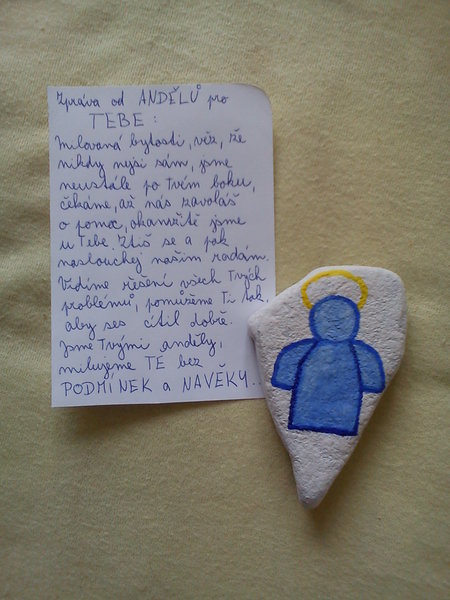 Zpráva od ANDĚLŮ pro
TEBE:
Milovaná bytosti, věz, že
nikdy nejsi sám, jsme
neustále po Tvém boku,
čekáme, až nás zavoláš
o pomoc, okamžitě jsme
u Tebe. Ztiš se a pak
naslouchej našim radám.
Vidíme řešení všech Tvých
problémů, pomůžeme Ti tak,
aby ses cítil dobře.
Jsme Tvými anděly,
milujeme TE bez
PODMÍNEK a NAVĚKY...